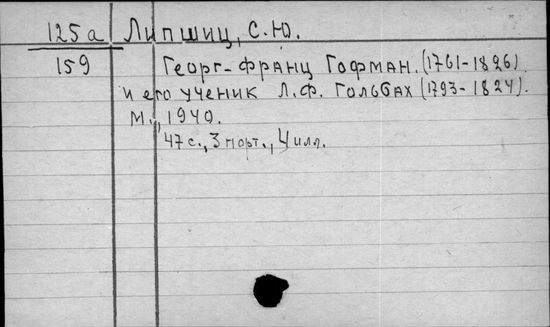 125а Липшиц, С.Ю.
159 Георг-Франц Гофман. (1761-1826)
и его ученик Л.Ф. Гольбах (1793-1824).
М., 1940.
47 с., 3 порт., 4 илл.